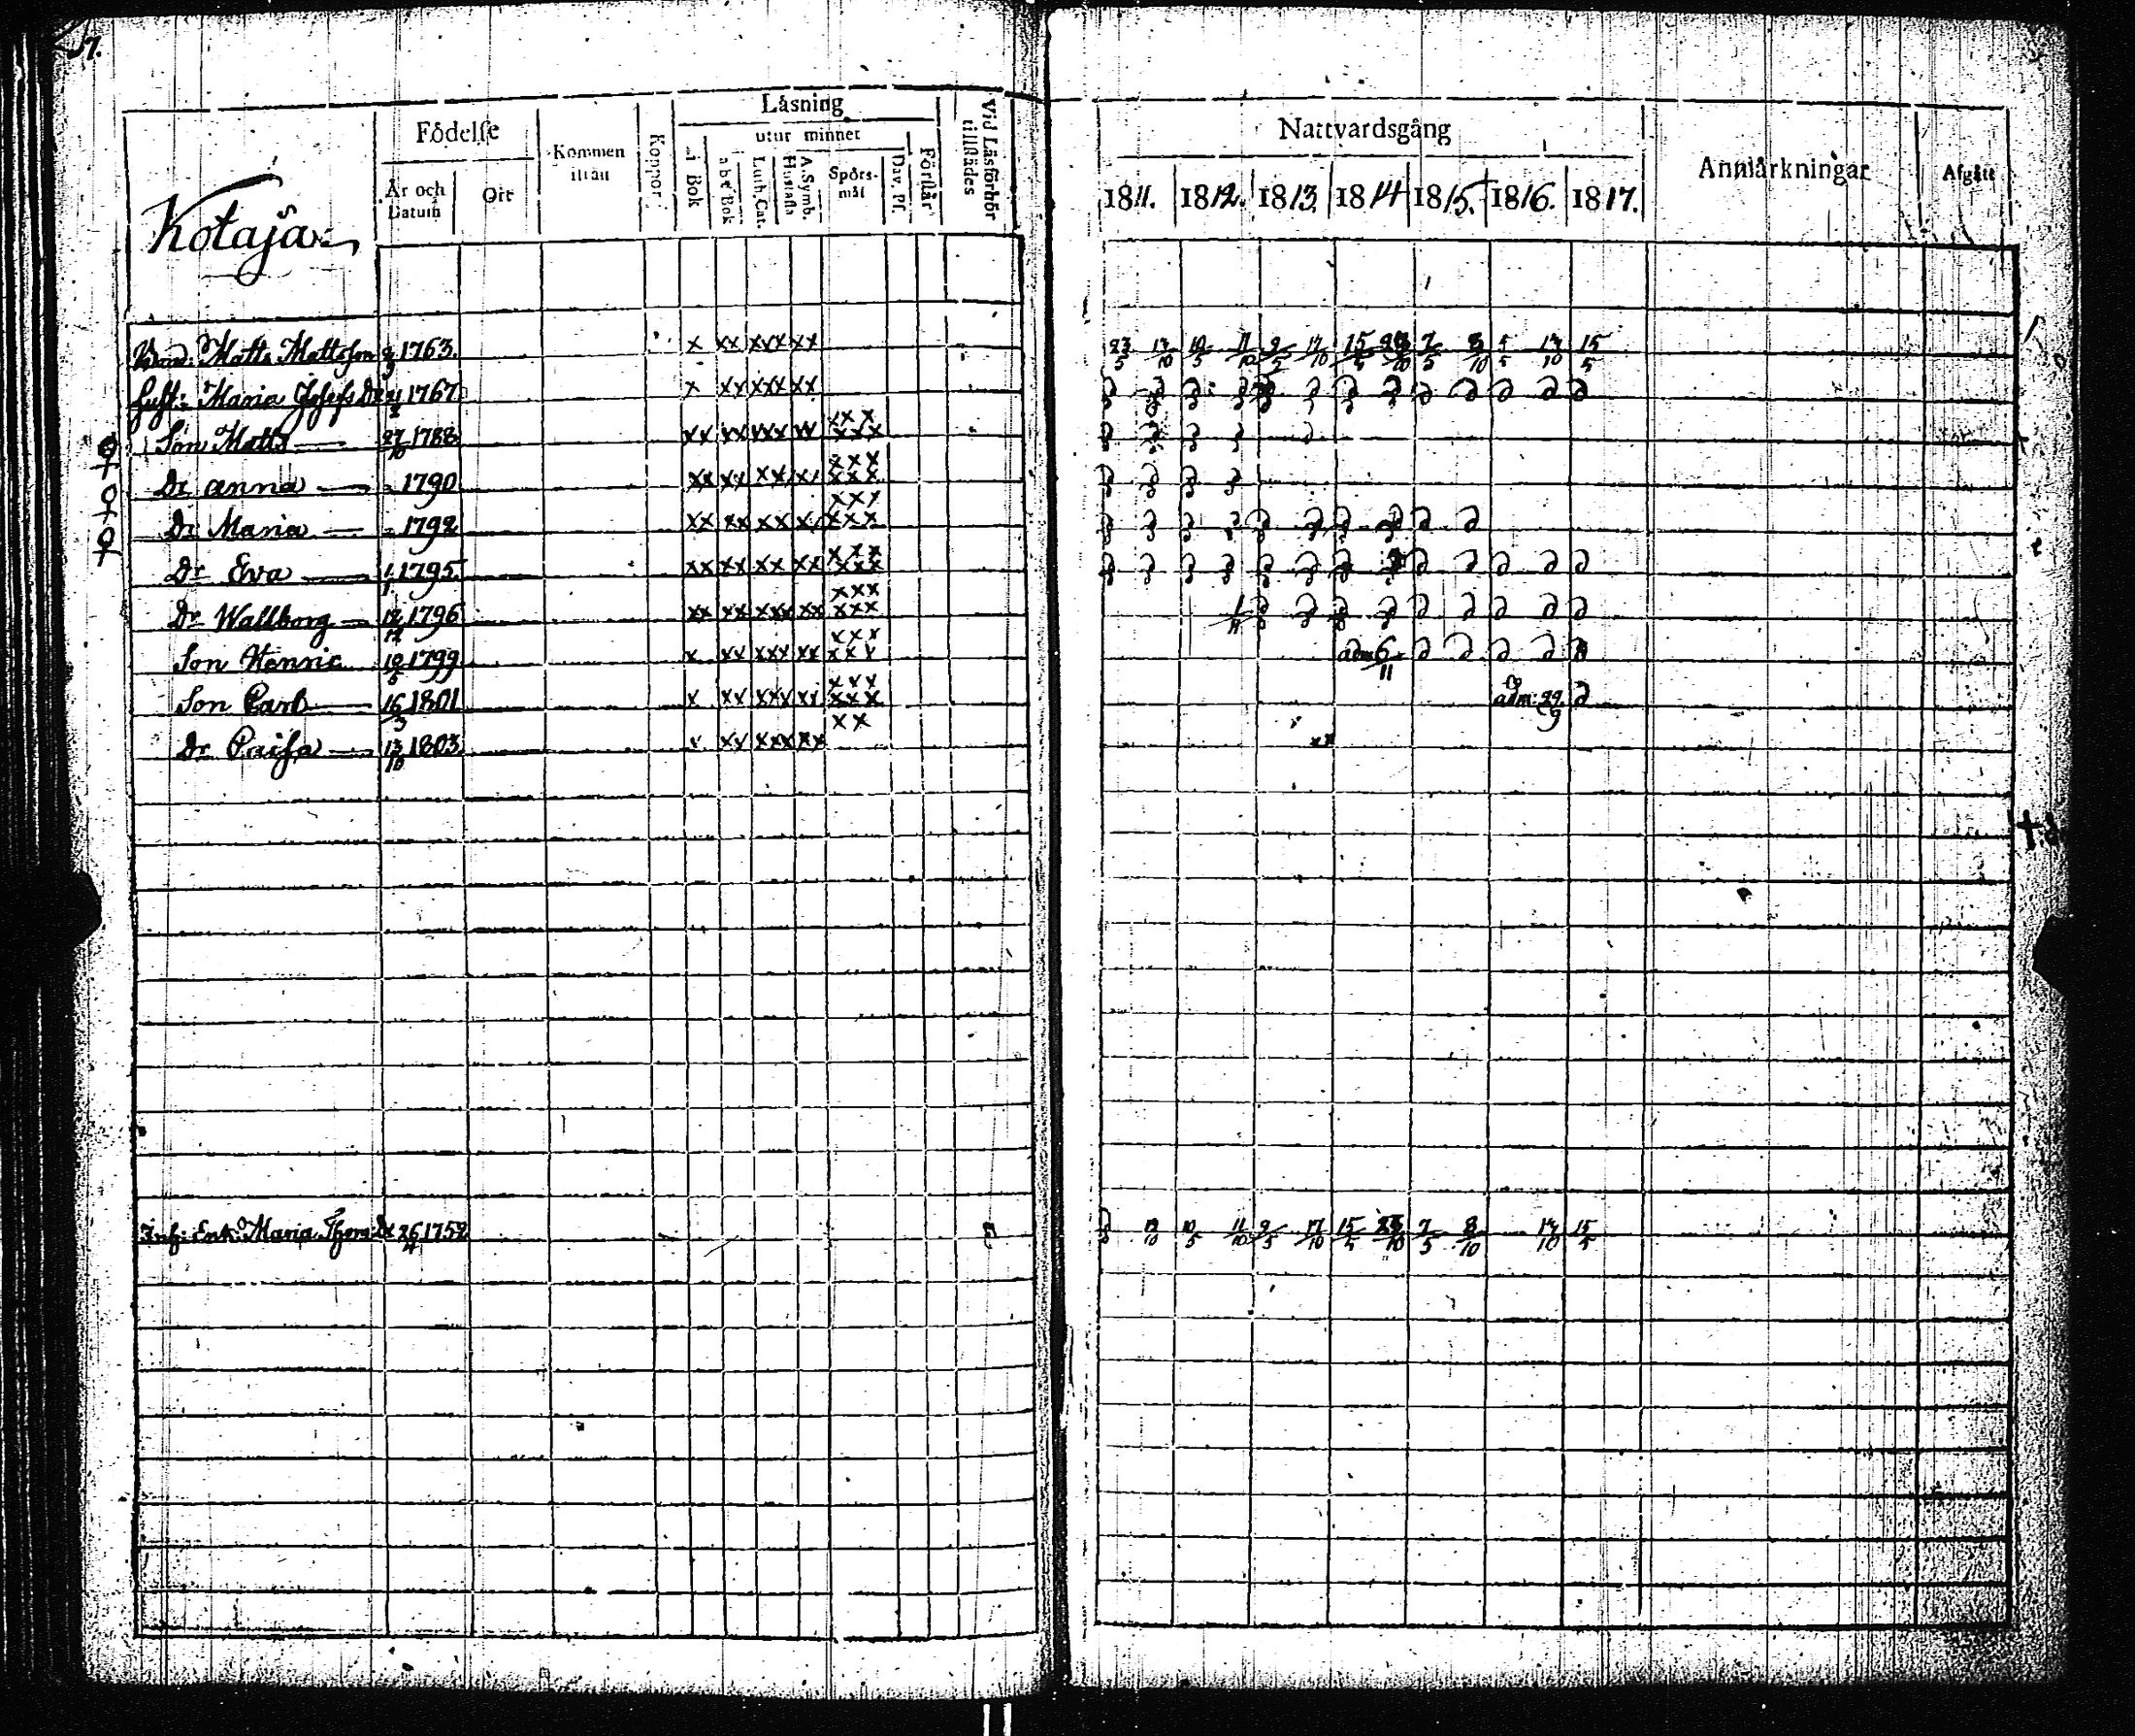 Läsning
Födelse
utur minnet
Kommen
ifrån
Koppor
i Bok
a b c Bok
Luth. Cat.
A. Symb.
Hustafla
Spörs-
mål
Dav. Pf.
Förstår
Vid Läsförhör
tillstädes
År och
Datum
Ort
Kotaja
Nattvardsgång
Anmärkningar
Afgått
1811. 1812. 1813. 1814 1815. 1816. 1817.
Bond: Matts Mattsson 1763. x xx xxx xx 23/5 13/10 10/5 11/10 9/5 17/10 15/5 23/10 7/5 8/10 5/5 13/10 15/5
Hust: Maria Josefs Dr 1767 x xx xxx xx
Son Matts 27/10 1788 xx xx xxx xx xxx xxx
Dr Anna 1790 xx xx xx xx xxx xxx
Dr Maria 1792 xx xx xx xx xxx xxx
Dr Eva 1/1 1795 xx xx xx xx xxx xxx
Dr Wallborg 12/12 1796 xx xx xxx xx xxx xxx
Son Henric 18/5 1799 x xx xxx xx xxx xxx adm 6/11
Son Carl 16/3 1801 x xx xxx xx xxx xxx adm: 29/9
Dr Caisa 13/10 1803 x xx xxx xx xx
Inh: Enk: Maria Thom: Dr 26/4 1752 13/10 10/5 11/10 9/5 17/10 15/5 23/10 7/5 8/10 13/10 15/5